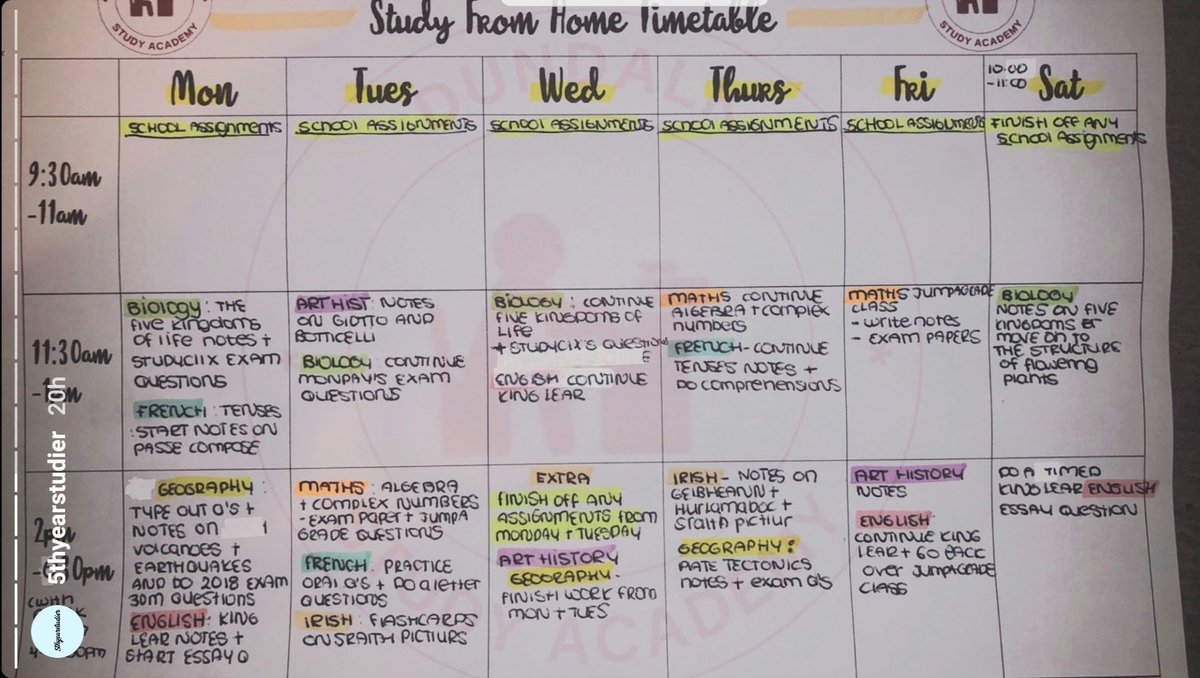 Study From Home Timetable
STUDY ACADEMY
STUDY ACADEMY
Mon
Tues
Wed
Thurs
Fri
10:00
-11:00
Sat
9:30am
-11am
SCHOOL ASSIGNMENTS
SCHOOL ASSIGNMENTS
SCHOOL ASSIGNMENTS
SCHOOL ASSIGNMENTS
SCHOOL ASSIGNMENTS
FINISH OFF ANY
SCHOOL ASSIGNMENTS
11:30am
BIOLOGY: THE
FIVE KINGDOMS
OF LIFE NOTES +
STUDYCLIX EXAM
QUESTIONS
FRENCH: TENSES
: START NOTES ON
PASSE COMPOSE
ART HIST: NOTES
ON GIOTTO AND
BOTTICELLI
BIOLOGY: CONTINUE
MONDAY'S EXAM
QUESTIONS
BIOLOGY: CONTINUE
FIVE KINGDOMS OF
LIFE
+ STUDYCLIX'S QUESTION
E
ENGLISH CONTINUE
KING LEAR
MATHS CONTINUE
ALGEBRA + COMPLEX
NUMBERS
FRENCH - CONTINUE
TENSES NOTES +
DO COMPREHENSIONS
MATHS JUMPAGRADE
CLASS
- WRITE NOTES
- EXAM PAPERS
BIOLOGY
NOTES ON FIVE
KINGDOMS OR
MOVE ON TO
THE STRUCTURE
OF FLOWERING
PLANTS
GEOGRAPHY:
TYPE OUT Q'S +
NOTES ON
VOLCANOES +
EARTHQUAKES
AND DO 2018 EXAM
30M QUESTIONS
ENGLISH: KING
LEAR NOTES +
START ESSAY Q
MATHS: ALGEBRA
+ COMPLEX NUMBERS
- EXAM PAPER + JUMPA
GRADE QUESTIONS
FRENCH: PRACTICE
ORAL Q'S + DO A LETTER
QUESTIONS
IRISH: FLASHCARDS
ON SRAITH PICTIURS
EXTRA
FINISH OFF ANY
ASSIGNMENTS FROM
MONDAY + TUESDAY
ART HISTORY
GEOGRAPHY -
FINISH WORK FROM
MON + TUES
IRISH - NOTES ON
GEIBHEANN +
HURLAMABOC +
SRAITH PICTIUR
GEOGRAPHY:
PLATE TECTONICS
NOTES + EXAM Q'S
ART HISTORY
NOTES
ENGLISH
CONTINUE KING
LEAR + GO BACK
OVER JUMPAGRADE
CLASS
DO A TIMED
KING LEAR ENGLISH
ESSAY QUESTION
5thyearstudier 20h
5thyearstudier